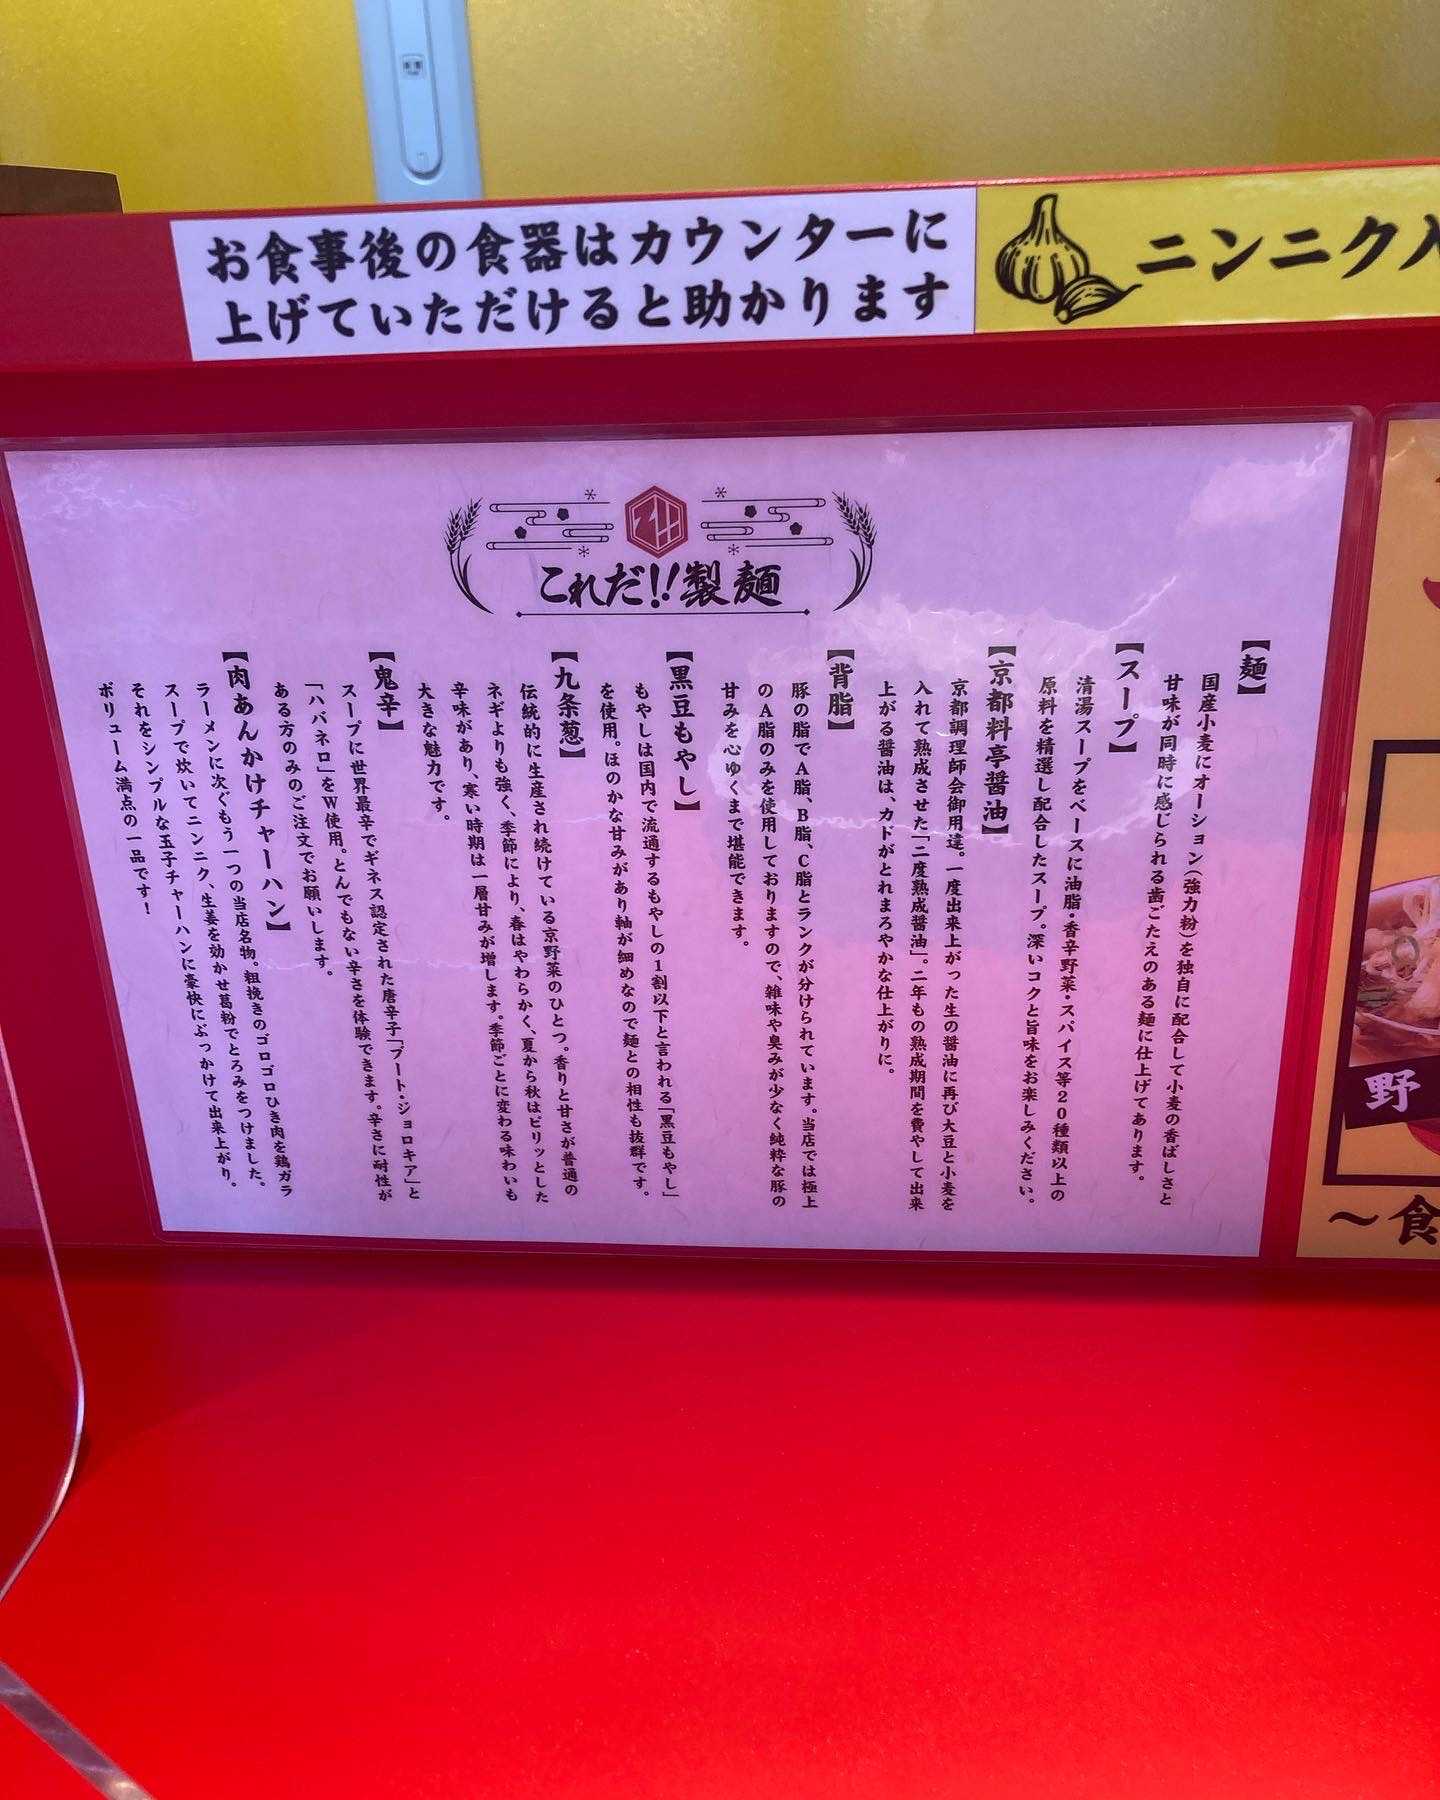 お食事後の食器はカウンターに
上げていただけると助かります
ニンニク入
これだ!!製麺
【麺】
国産小麦にオーション(強力粉)を独自に配合して小麦の香ばしさと
甘味が同時に感じられる歯ごたえのある麺に仕上げてあります。
【スープ】
清湯スープをベースに油脂・香辛野菜・スパイス等20種類以上の
原料を精選し配合したスープ。深いコクと旨味をお楽しみください。
【京都料亭醤油】
京都調理師会御用達。一度出来上がった生の醤油に再び大豆と小麦を
入れて熟成させた「二度熟成醤油」。二年もの熟成期間を費やして出来
上がる醤油は、カドがとれまろやかな仕上がりに。
【背脂】
豚の脂でA脂、B脂、C脂とランクが分けられています。当店では極上
のA脂のみを使用しておりますので、雑味や臭みが少なく純粋な豚の
甘みを心ゆくまで堪能できます。
【黒豆もやし】
もやしは国内で流通するもやしの1割以下と言われる「黒豆もやし」
を使用。ほのかな甘みがあり軸が細めなので麺との相性も抜群です。
【九条葱】
伝統的に生産され続けている京野菜のひとつ。香りと甘さが普通の
ネギよりも強く、季節により、春はやわらかく、夏から秋はピリッとした
辛味があり、寒い時期は一層甘みが増します。季節ごとに変わる味わいも
大きな魅力です。
【鬼辛】
スープに世界最辛でギネス認定された唐辛子「ブート・ジョロキア」と
「ハバネロ」をW使用。とんでもない辛さを体験できます。辛さに耐性が
ある方のみのご注文でお願いします。
【肉あんかけチャーハン】
ラーメンに次ぐもう一つの当店名物。粗挽きのゴロゴロひき肉を鶏ガラ
スープで炊いてニンニク、生姜を効かせ葛粉でとろみをつけました。
それをシンプルな玉子チャーハンに豪快にぶっかけて出来上がり。
ボリューム満点の一品です!
野
〜食